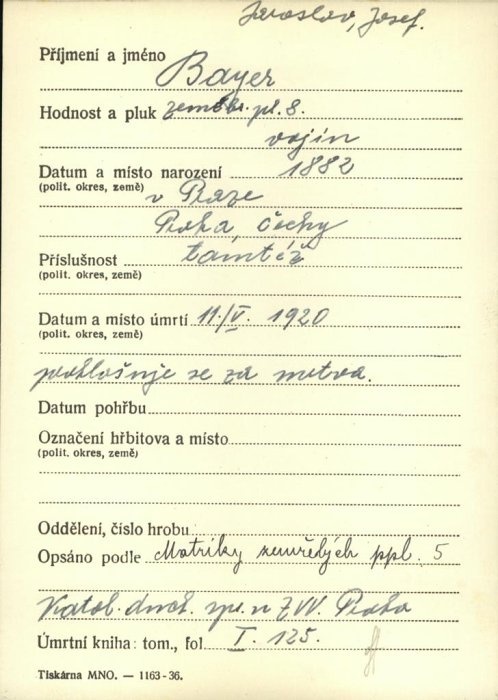 Jaroslav, Josef.
Příjmení a jméno
Bayer
Hodnost a pluk zeměbr. pl. 8.
vojín
Datum a místo narození 1882
(polit. okres, země) v Praze
Praha, Čechy
Příslušnost tamtéž
(polit. okres, země)
Datum a místo úmrtí 11./V. 1920
(polit. okres, země)
prohlašuje se za mrtva.
Datum pohřbu
Označení hřbitova a místo
(polit. okres, země)
Oddělení, číslo hrobu
Opsáno podle Matriky zemřelých ppl. 5
Katol. duch. spr. n ZVV. Praha
Úmrtní kniha: tom., fol I. 125.
Tiskárna MNO. — 1163-36.